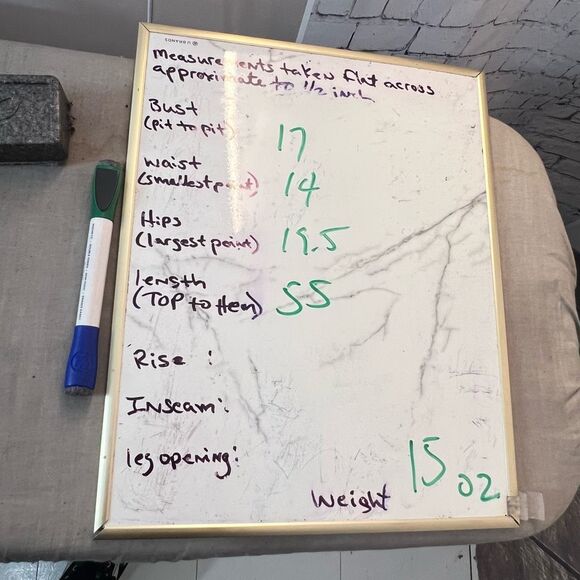 U BRANDS
Measurements taken flat across
approximate to 1/2 inch
Bust
(pit to pit) 17
Waist
(smallest point) 14
Hips
(largest point) 19.5
length
(TOP to Hem) 55
Rise :
Inseam:
leg opening:
Weight 15 oz